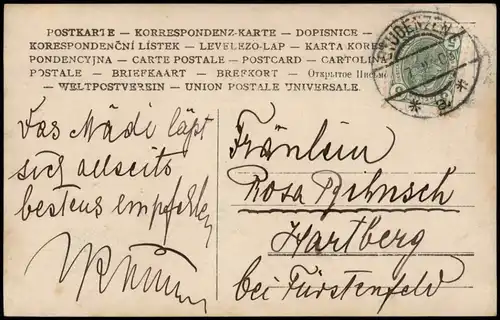 POSTKARTE – KORRESPONDENZ-KARTE – DOPISNICE –
KORESPONDENČNÍ LÍSTEK – LEVELEZO-LAP – KARTA KORES
PONDENCYJNA – CARTE POSTALE – POSTCARD – CARTOLINA
POSTALE – BRIEFKAART – BREFKORT – Открытое Письмо
– WELTPOSTVEREIN – UNION POSTALE UNIVERSALE.
STUDENZEN
* a *
Das Mädi läßt
sich allseits
bestens empfehlen
Fräulein
Rosa
Hartberg
bei Fürstenfeld